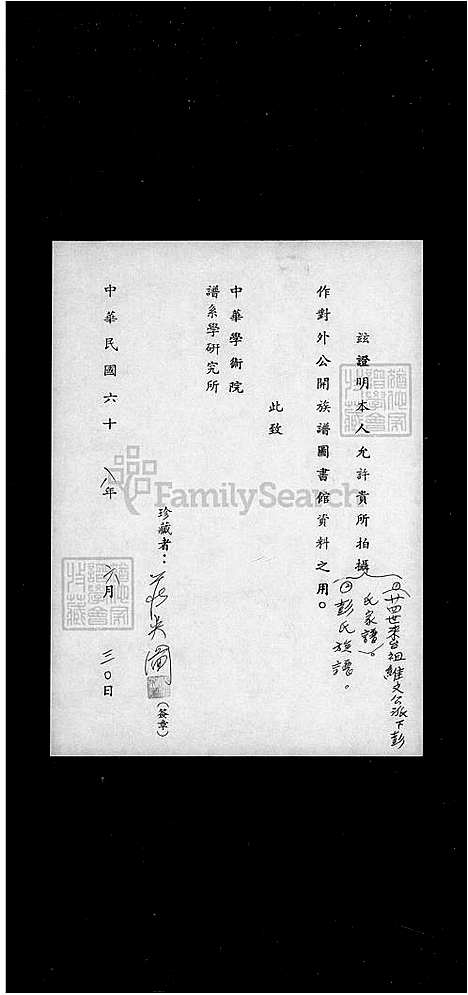 茲證明本人允許貴所拍攝
㊀廿四世來台祖維文公派下彭
氏家譜。
㊁彭氏族譜。
作對外公開族譜圖書館資料之用。
此致
中華學術院
譜系學研究所
珍藏者：
(簽章)
中華民國六十八年六月三〇日
FamilySearch